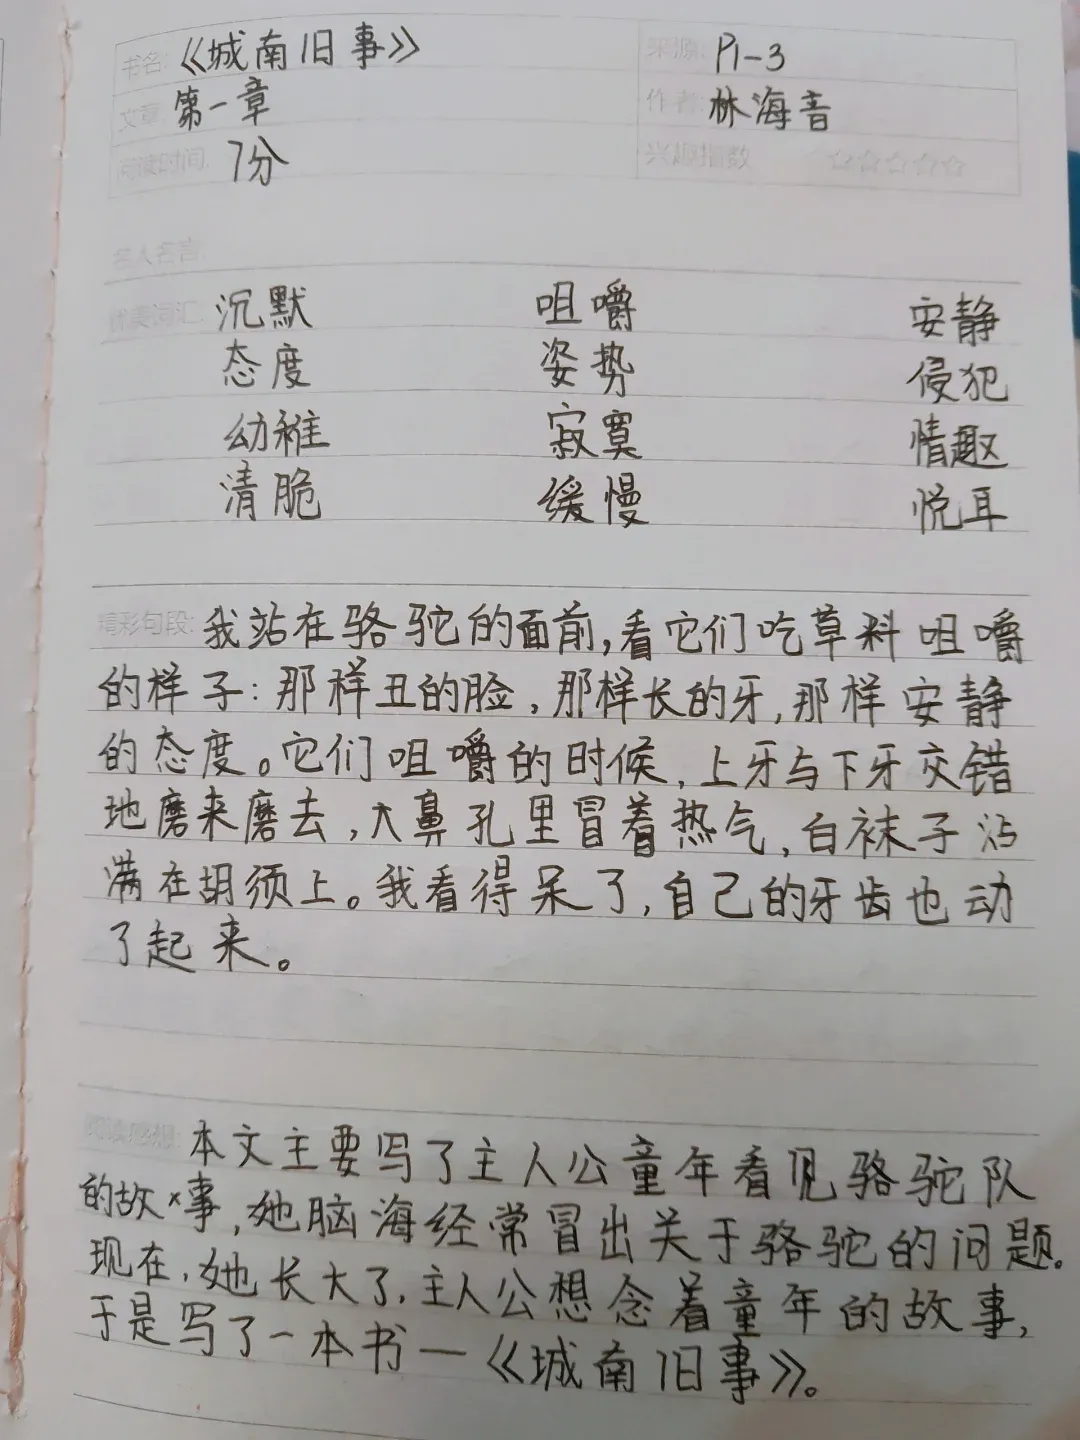 书名: 《城南旧事》 来源: P1-3
文章: 第一章 作者: 林海音
阅读时间: 7分 兴趣指数 ☆☆☆☆☆
名人名言:
优美词汇: 沉默 咀嚼 安静
态度 姿势 侵犯
幼稚 寂寞 情趣
清脆 缓慢 悦耳
精彩句段: 我站在骆驼的面前,看它们吃草料咀嚼
的样子:那样丑的脸,那样长的牙,那样安静
的态度。它们咀嚼的时候,上牙与下牙交错
地磨来磨去,大鼻孔里冒着热气,白袜子沾
满在胡须上。我看得呆了,自己的牙齿也动
了起来。
阅读感想: 本文主要写了主人公童年看见骆驼队
的故×事,她脑海经常冒出关于骆驼的问题。
现在,她长大了,主人公想念着童年的故事,
于是写了一本书—《城南旧事》。